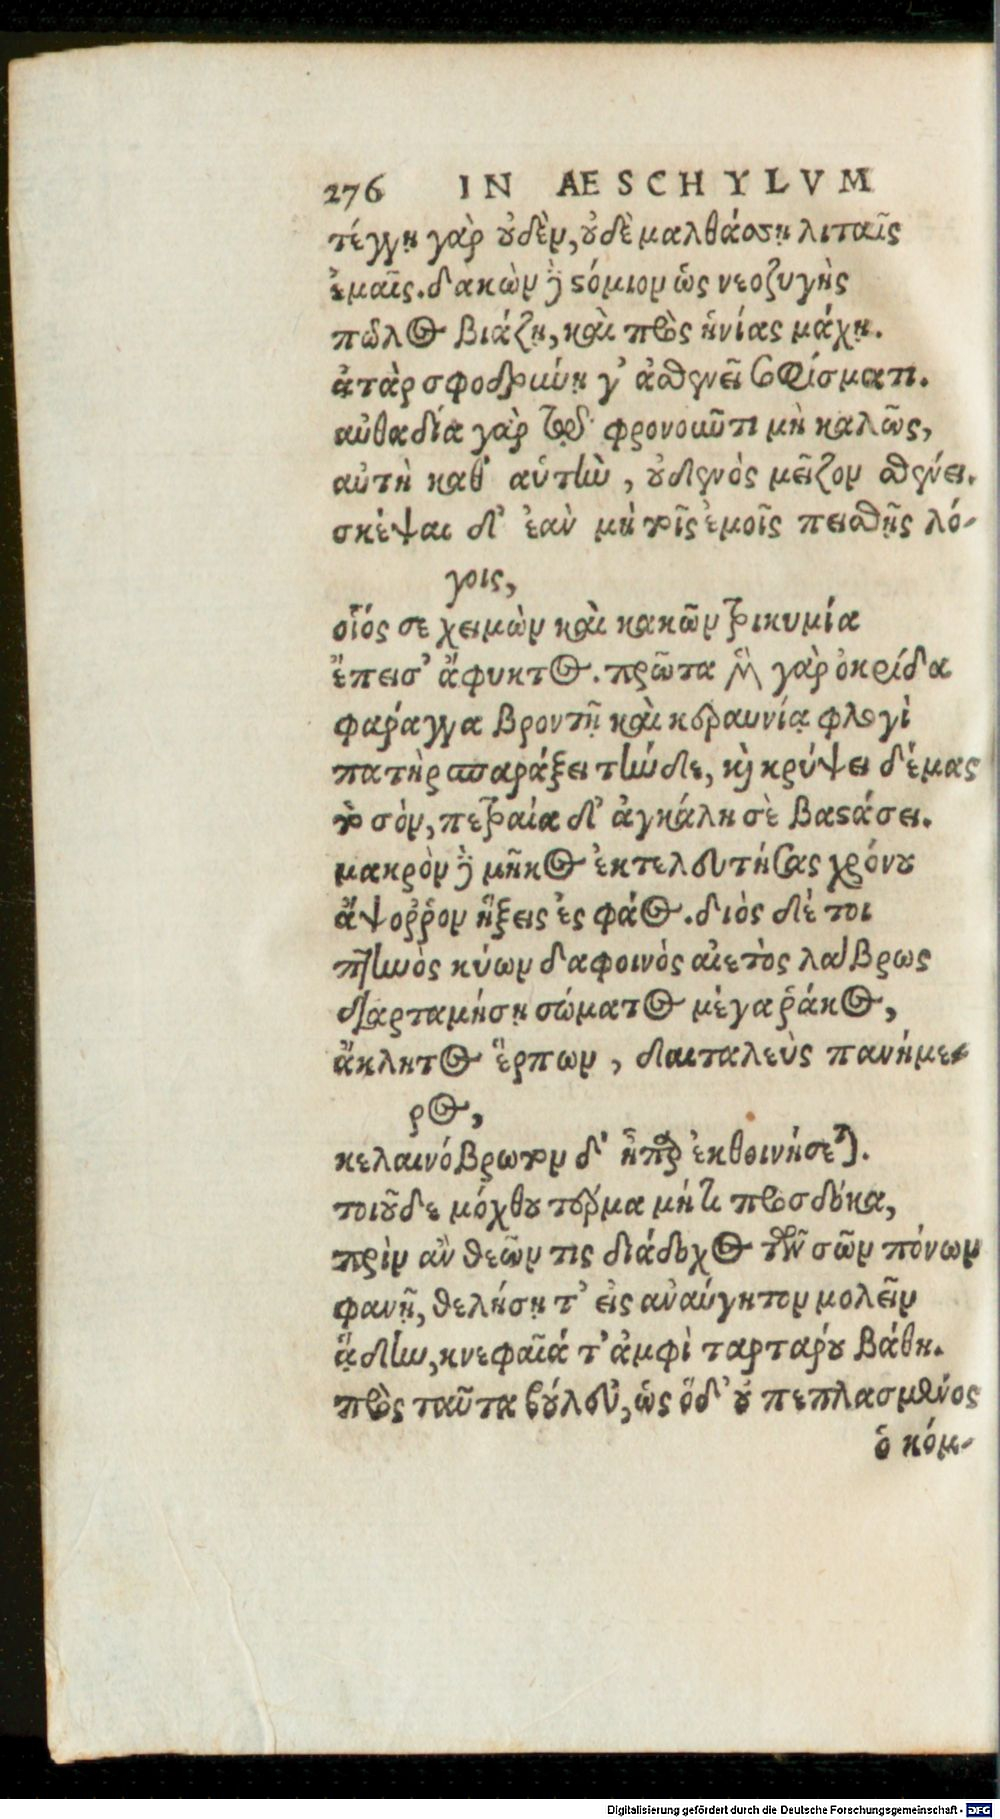 276 IN AESCHYLVM
τέγγῃ γὰρ οὐδὲν, οὐδὲ μαλθάσσῃ λιταῖς
ἐμαῖς. δακὼν δὲ στόμιον ὡς νεοζυγὴς
πῶλος βιάζῃ, καὶ πρὸς ἡνίας μάχῃ.
ἀτὰρ σφοδρύνῃ γ' ἀσθενεῖ σοφίσματι.
αὐθαδία γὰρ τῷ φρονοῦντι μὴ καλῶς,
αὐτὴ καθ' αὑτὴν, οὐδενὸς μεῖζον σθένει.
σκέψαι δ' ἐὰν μὴ τοῖς ἐμοῖς πεισθῇς λό-
γοις,
οἷός σε χειμὼν καὶ κακῶν τρικυμία
ἔπεισ' ἄφυκτος. πρῶτα μὲν γὰρ ὀκρίδα
φάραγγα βροντῇ καὶ κεραυνίᾳ φλογὶ
πατὴρ σπαράξει τήνδε, καὶ κρύψει δέμας
τὸ σὸν, πετραία δ' ἀγκάλη σὲ βαστάσει.
μακρὸν δὲ μῆκος ἐκτελευτήσας χρόνου
ἄψοῤῥον ἥξεις ἐς φάος. διὸς δέ τοι
πτηνὸς κύων δαφοινὸς αἰετὸς λάβρως
διαρταμήσῃ σώματος μέγα ῥάκος,
ἄκλητος ἕρπων, δαιταλεὺς πανήμε-
ρος,
κελαινόβρωτον δ' ἧπαρ ἐκθοινήσεται.
τοιοῦδε μόχθου τέρμα μήτι προσδόκα,
πρὶν ἂν θεῶν τις διάδοχος τῶν σῶν πόνων
φανῇ, θελήσῃ τ' εἰς ἀναύγητον μολεῖν
ᾅδην, κνεφαῖά τ' ἀμφὶ ταρτάρου βάθη.
πρὸς ταῦτα βούλευ', ὡς ὅδ' οὐ πεπλασμένος
ὁ κόμ-
Digitalisierung gefördert durch die Deutsche Forschungsgemeinschaft - DFG